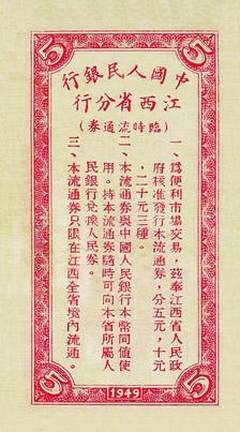 5
5
中國人民銀行
江西省分行
(臨時流通券)
一、為便利市場交易,茲奉江西省人民政
府核准發行本流通券,分五元,十元
,二十元三種。
二、本流通券與中國人民銀行本幣同值使
用。持本流通券隨時可向本省所屬人
民銀行兌換人民券。
三、本流通券只限在江西全省境內流通。
5
1949
5